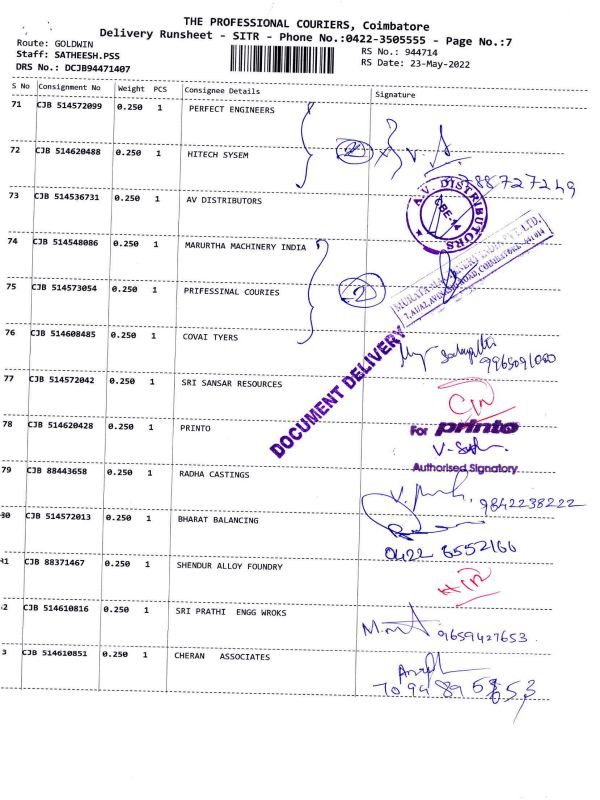 THE PROFESSIONAL COURIERS, Coimbatore
Delivery Runsheet - SITR - Phone No.:0422-3505555 - Page No.:7
Route: GOLDWIN
Staff: SATHEESH.PSS
DRS No.: DCJB94471407
RS No.: 944714
RS Date: 23-May-2022
S No Consignment No Weight PCS Consignee Details Signature
71 CJB 514572099 0.250 1 PERFECT ENGINEERS
72 CJB 514620488 0.250 1 HITECH SYSEM
2
73 CJB 514536731 0.250 1 AV DISTRIBUTORS
A.V. DISTRIBUTORS
CBE-14
74 CJB 514548086 0.250 1 MARURTHA MACHINERY INDIA
75 CJB 514573054 0.250 1 PRIFESSINAL COURIES
2
76 CJB 514608485 0.250 1 COVAI TYERS
DOCUMENT DELIVERY
77 CJB 514572042 0.250 1 SRI SANSAR RESOURCES
78 CJB 514620428 0.250 1 PRINTO
For printo
Authorised Signatory
79 CJB 88443658 0.250 1 RADHA CASTINGS
9842238222
80 CJB 514572013 0.250 1 BHARAT BALANCING
0422 6552166
41 CJB 88371467 0.250 1 SHENDUR ALLOY FOUNDRY
2 CJB 514610816 0.250 1 SRI PRATHI ENGG WROKS
9659427653
3 CJB 514610851 0.250 1 CHERAN ASSOCIATES